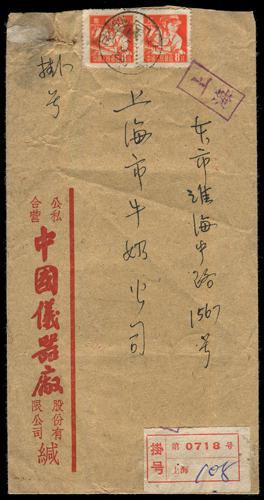 上海
本市淮海中路1567号
上海市牛奶公司
掛号
公私合营
中國儀器廠
股份有限公司
緘
掛号
第 0718 号
上海
108